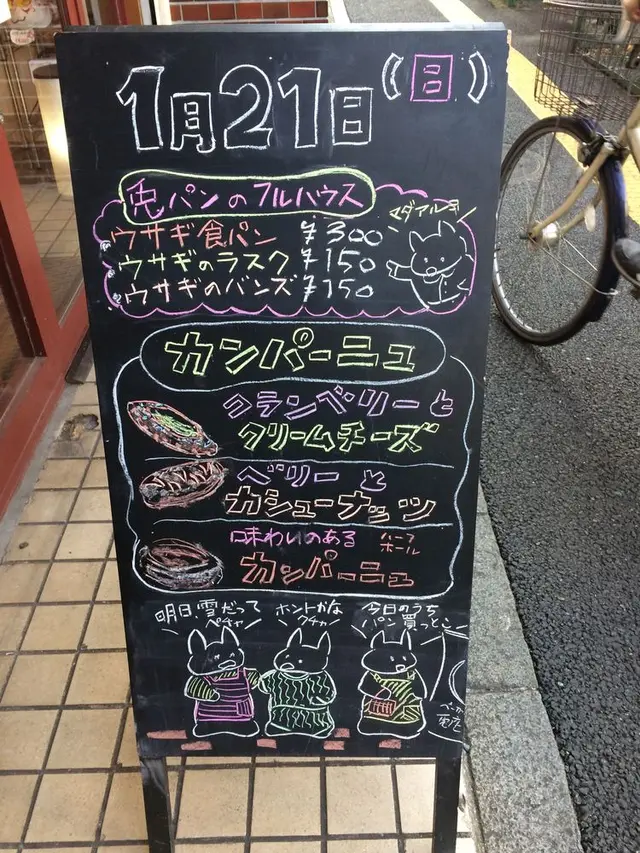 1月21日(日)
兎パンのフルハウス
マダアルデ
ウサギ食パン ¥300
ウサギのラスク ¥150
ウサギのバンズ ¥150
カンパーニュ
クランベリーと
クリームチーズ
ベリーと
カシューナッツ
味わいのある ハーフ ホール
カンパーニュ
明日、雪だって
ペチャ
ホントかな
クチャ
今日のうち
パン買っとこ